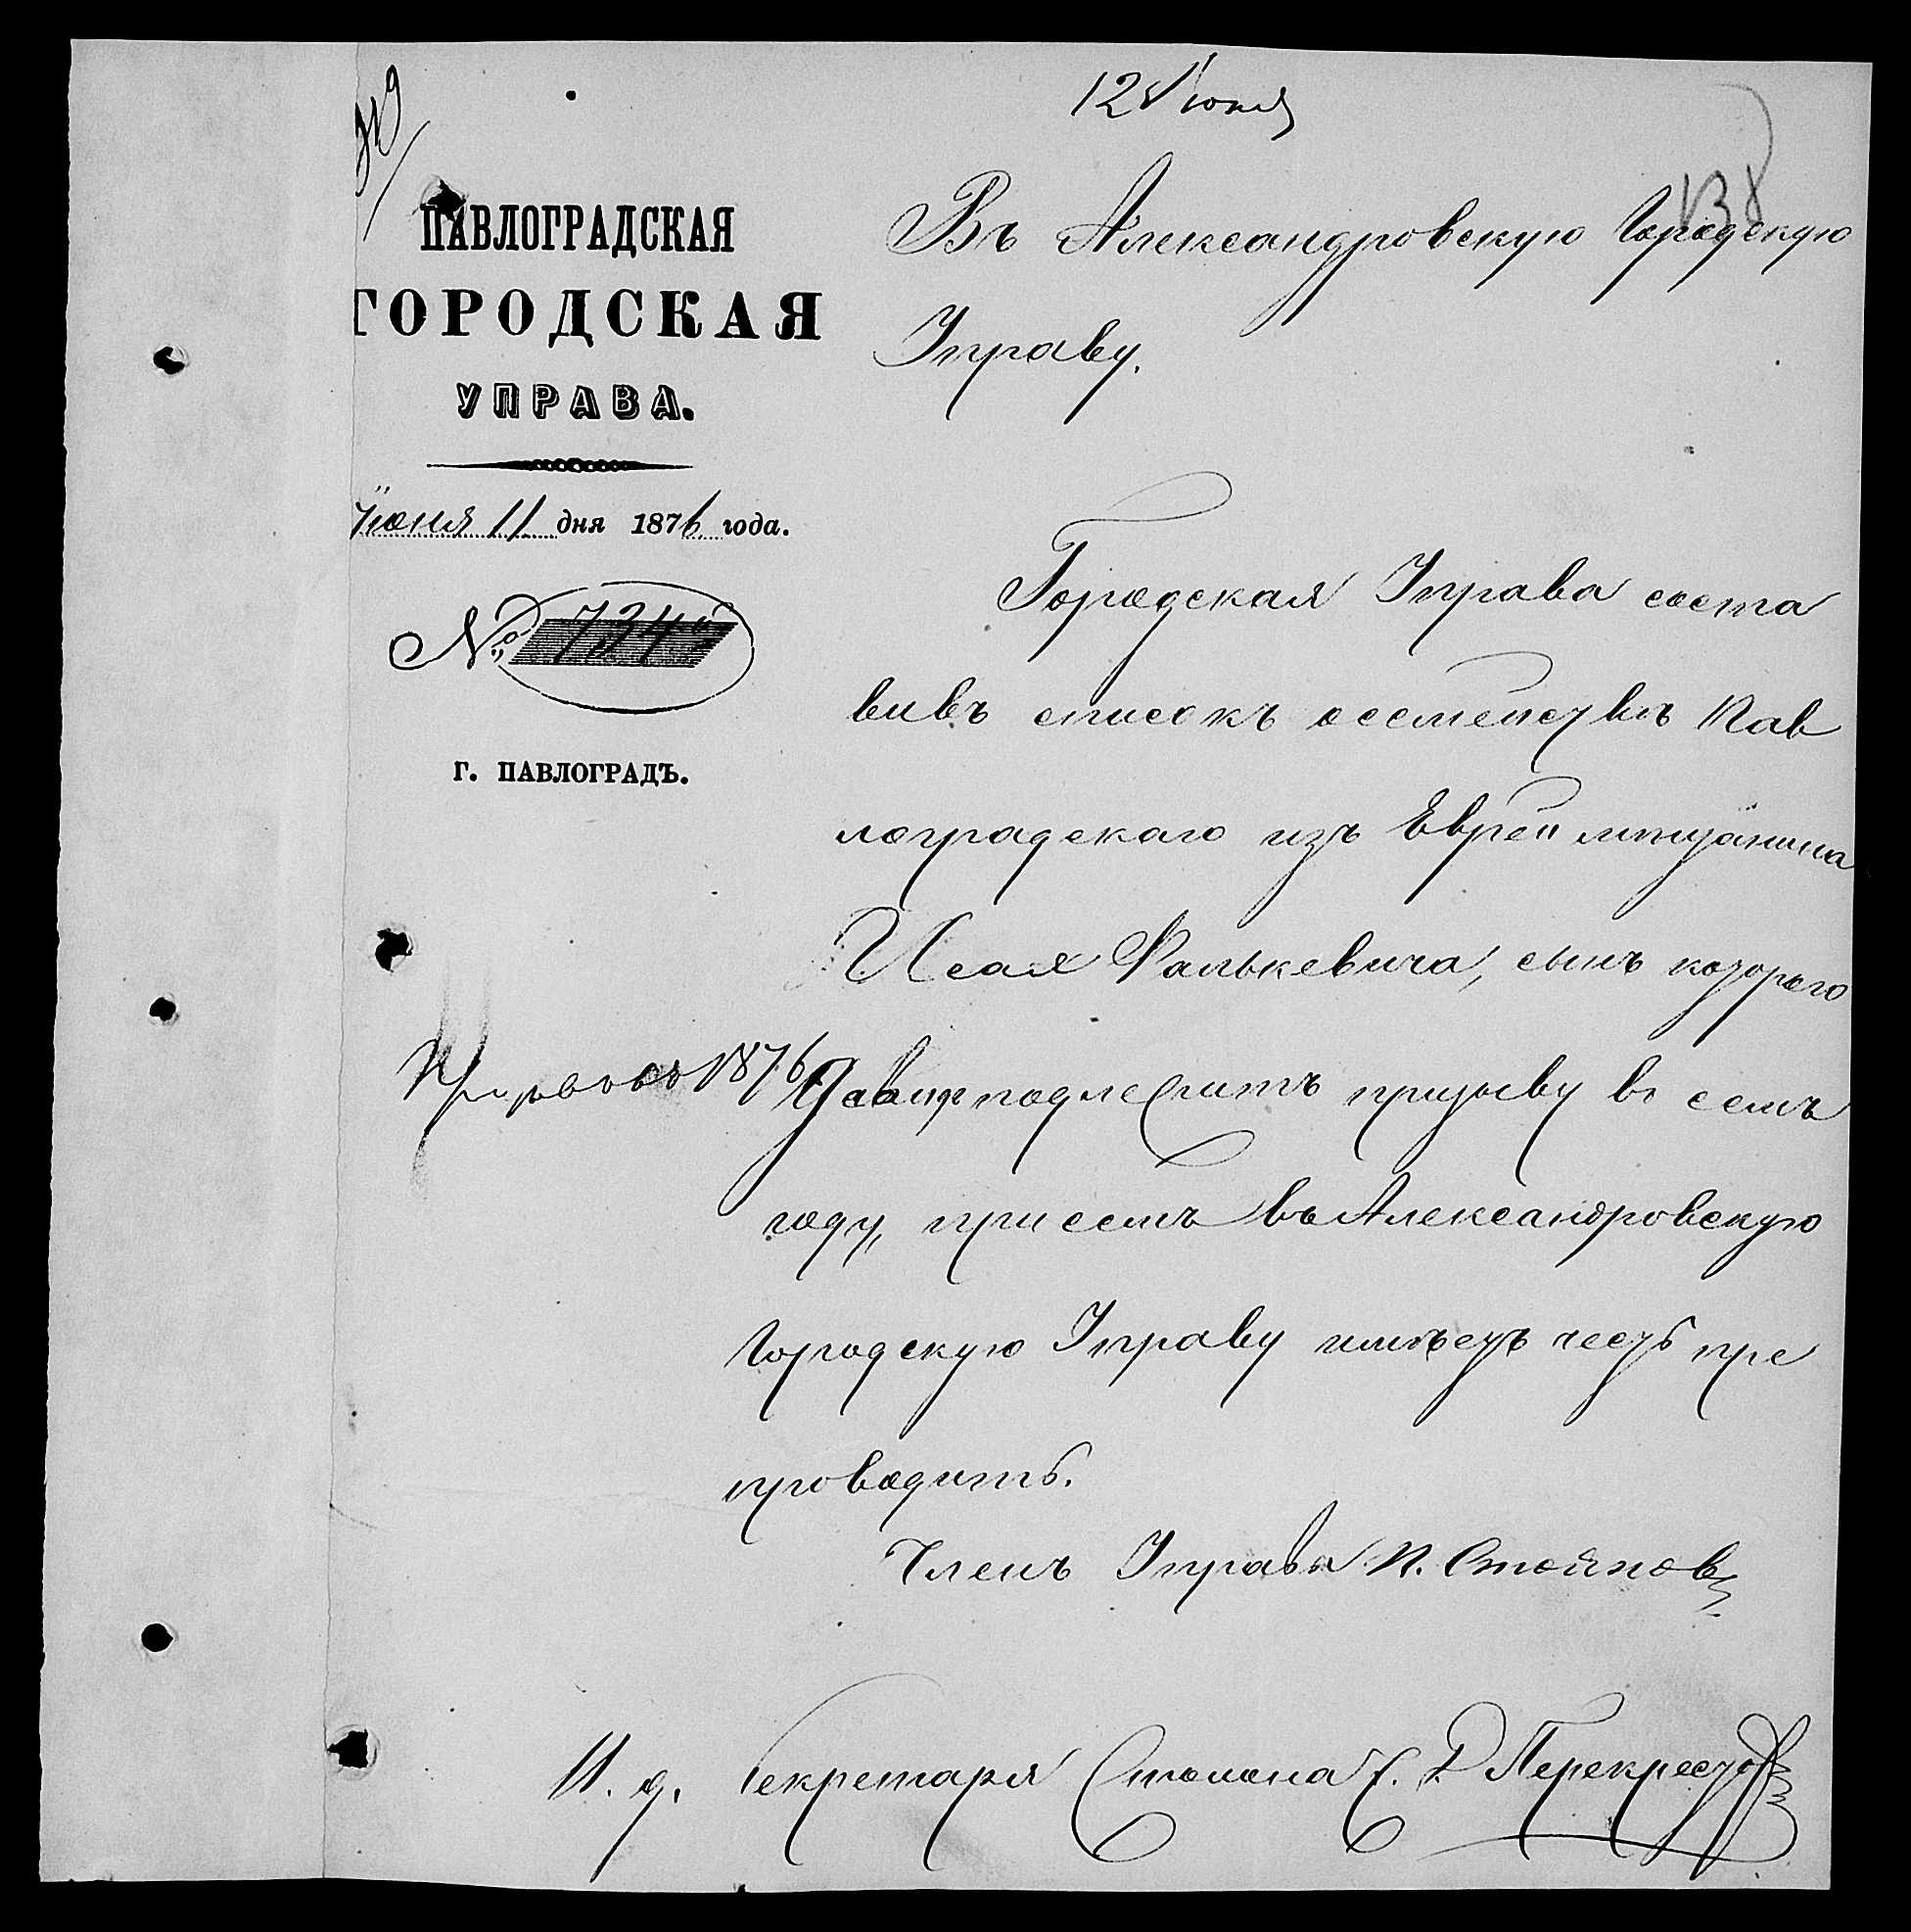 12 Июня
138
ПАВЛОГРАДСКАЯ
ГОРОДСКАЯ
УПРАВА.
Июня 11 дня 1876 года.
№ 734
Г. ПАВЛОГРАДЪ.
Въ Александровскую Городскую
Управу.
Городская Управа соста
вивъ списокъ о семействѣ Пав
лоградскаго изъ Еврей мѣщанина
Исая Фалькевича, сынъ котораго
Давид подлежитъ призыву в семъ
году, при семъ въ Александровскую
Городскую Управу имѣетъ честь пре
проводить.
1876
Членъ Управы П. Стойнов
И. д. Секретаря Столона Перекрестов